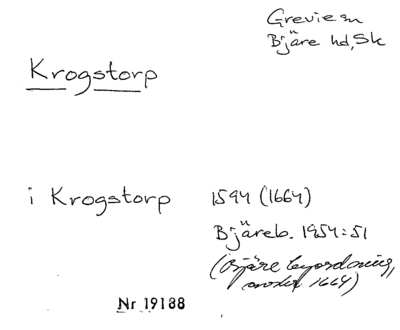 Grevie sn
Bjäre hd, Sk
Krogstorp
i Krogstorp 1594 (1664)
Bjäreb. 1954:51
(Bjäre byordning,
1664)
Nr 19188